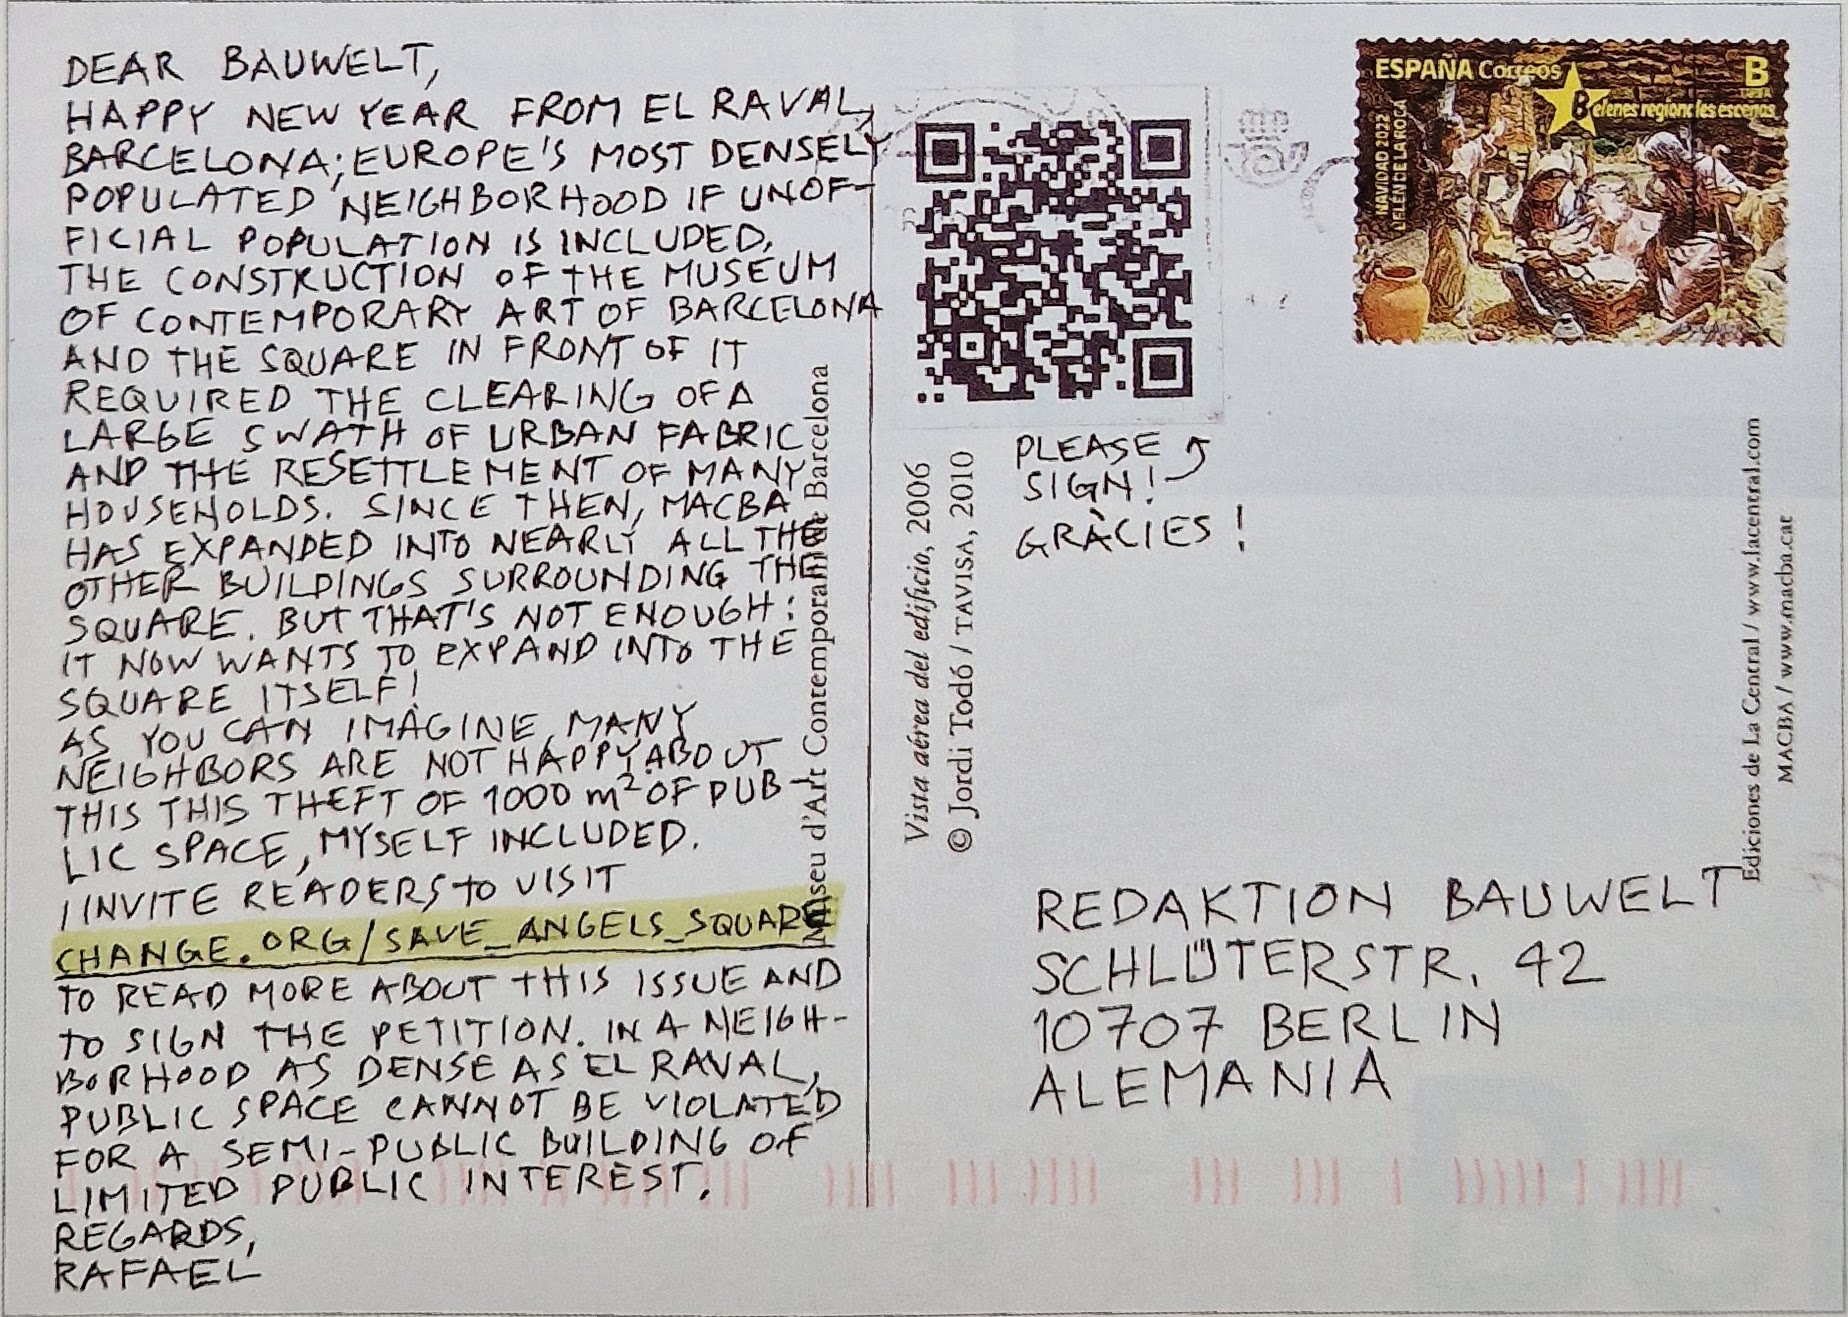 DEAR BAUWELT,
HAPPY NEW YEAR FROM EL RAVAL,
BARCELONA; EUROPE'S MOST DENSELY
POPULATED NEIGHBORHOOD IF UNOF-
FICIAL POPULATION IS INCLUDED.
THE CONSTRUCTION OF THE MUSEUM
OF CONTEMPORARY ART OF BARCELONA
AND THE SQUARE IN FRONT OF IT
REQUIRED THE CLEARING OF A
LARGE SWATH OF URBAN FABRIC
AND THE RESETTLEMENT OF MANY
HOUSEHOLDS. SINCE THEN, MACBA
HAS EXPANDED INTO NEARLY ALL THE
OTHER BUILDINGS SURROUNDING THE
SQUARE. BUT THAT'S NOT ENOUGH:
IT NOW WANTS TO EXPAND INTO THE
SQUARE ITSELF!
AS YOU CAN IMAGINE, MANY
NEIGHBORS ARE NOT HAPPY ABOUT
THIS THIS THEFT OF 1000 m² OF PUB-
LIC SPACE, MYSELF INCLUDED.
I INVITE READERS TO VISIT
CHANGE.ORG/SAVE_ANGELS_SQUARE
TO READ MORE ABOUT THIS ISSUE AND
TO SIGN THE PETITION. IN A NEIGH-
BORHOOD AS DENSE AS EL RAVAL,
PUBLIC SPACE CANNOT BE VIOLATED
FOR A SEMI-PUBLIC BUILDING OF
LIMITED PUBLIC INTEREST.
REGARDS,
RAFAEL
Museu d'Art Contemporani de Barcelona
Vista aérea del edificio, 2006
© Jordi Todó / TAVISA, 2010
PLEASE
SIGN!
GRÀCIES!
ESPAÑA Correos
B
TARIFA
Belenes regionales escenas
NAVIDAD 2022
BELÉN DE LA ROCA
REDAKTION BAUWELT
SCHLÜTERSTR. 42
10707 BERLIN
ALEMANIA
Ediciones de La Central / www.lacentral.com
MACBA / www.macba.cat